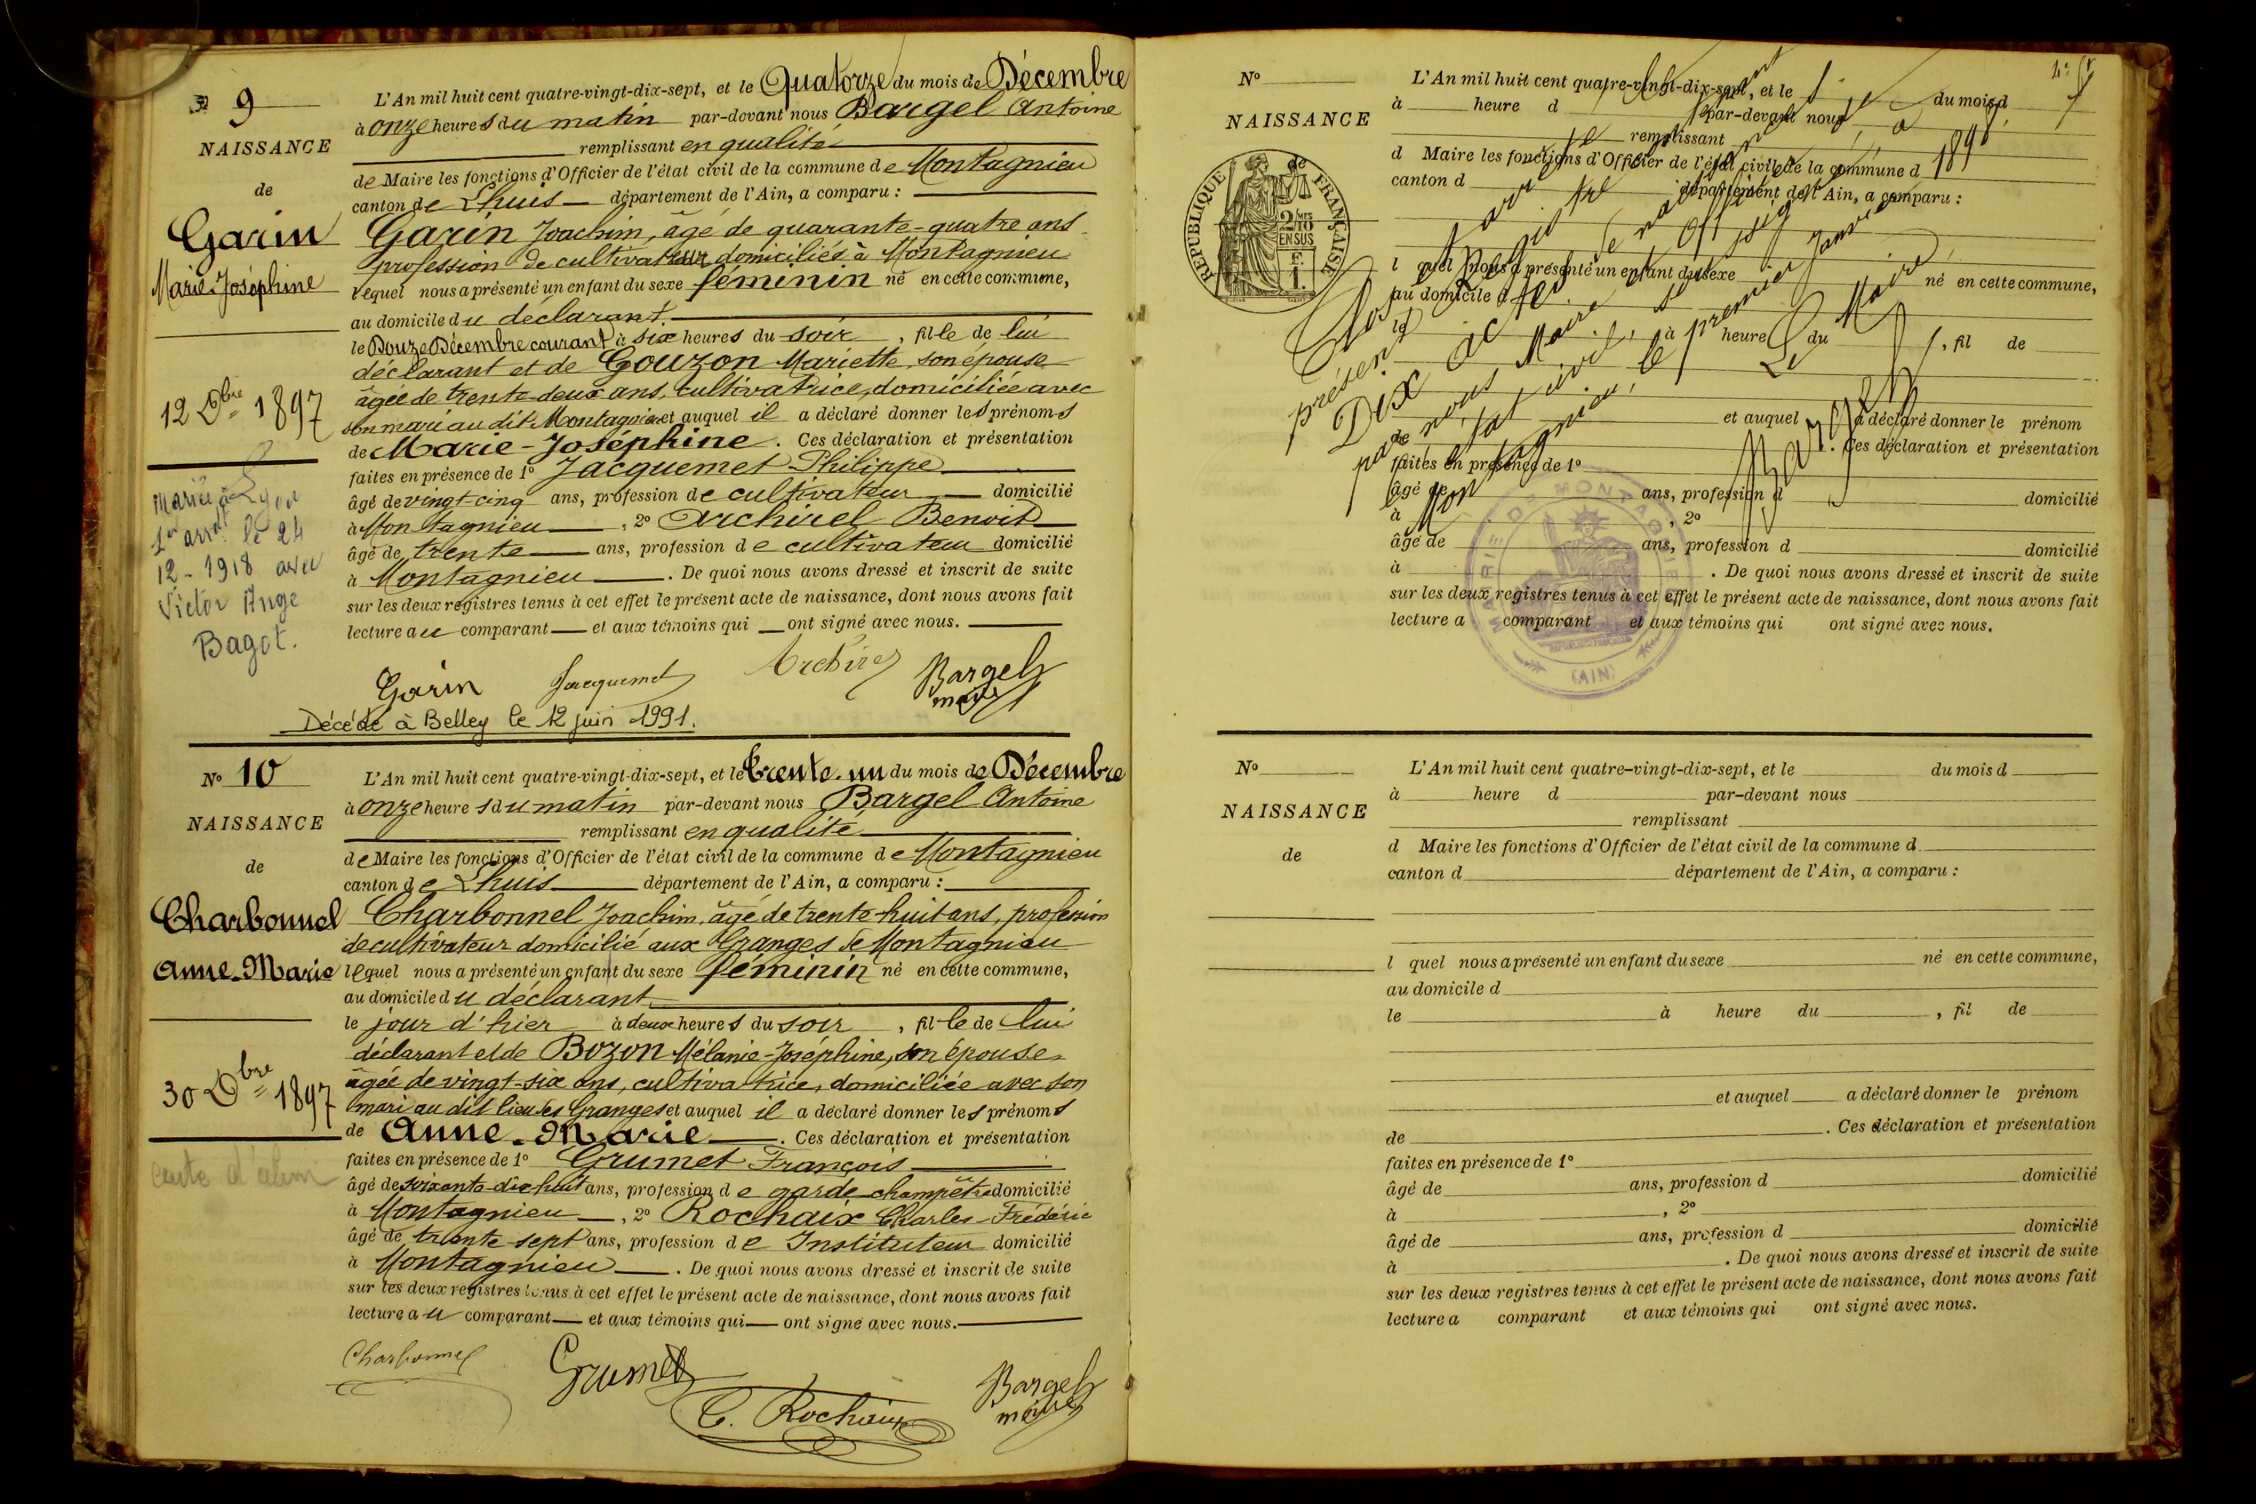 № 9
NAISSANCE
de
Garin
Marie-Joséphine
12 Dbre 1897
Mariée à Lyon
1er arrt le 24
12-1918 avec
Victor Ange
Bagot.
L'An mil huit cent quatre-vingt-dix-sept, et le Quatorze du mois de Décembre
à onze heures du matin par-devant nous Bargel Antoine
remplissant en qualité
de Maire les fonctions d'Officier de l'état civil de la commune de Montagnieu
canton de Lhuis département de l'Ain, a comparu :
Garin Joachim, âgé de quarante-quatre ans
profession de cultivateur domiciliés à Montagnieu
lequel nous a présenté un enfant du sexe féminin né en cette commune,
au domicile du déclarant
le Douze Décembre courant à six heures du soir, fille de lui
déclarant et de Gouzon Mariette, son épouse
âgée de trente-deux ans, cultivatrice, domiciliée avec
son mari au dit Montagnieu et auquel il a déclaré donner les prénoms
de Marie-Joséphine. Ces déclaration et présentation
faites en présence de 1° Jacquemet Philippe
âgé de vingt-cinq ans, profession de cultivateur domicilié
à Montagnieu, 2° Archirel Benoit
âgé de trente ans, profession de cultivateur domicilié
à Montagnieu. De quoi nous avons dressé et inscrit de suite
sur les deux registres tenus à cet effet le présent acte de naissance, dont nous avons fait
lecture au comparant et aux témoins qui ont signé avec nous.
Garin Jacquemet Archirel Bargel
maire
Décédé à Belley le 12 juin 1991.
№ 10
NAISSANCE
de
Charbonnel
Anne-Marie
30 Dbre 1897
L'An mil huit cent quatre-vingt-dix-sept, et le trente-un du mois de Décembre
à onze heures du matin par-devant nous Bargel Antoine
remplissant en qualité
de Maire les fonctions d'Officier de l'état civil de la commune de Montagnieu
canton de Lhuis département de l'Ain, a comparu :
Charbonnel Joachim, âgé de trente-huit ans, profession
de cultivateur domicilié aux Granges de Montagnieu
lequel nous a présenté un enfant du sexe féminin né en cette commune,
au domicile du déclarant
le jour d'hier à deux heures du soir, fille de lui
déclarant et de Bozon Mélanie-Joséphine, son épouse
âgée de vingt-six ans, cultivatrice, domiciliée avec son
mari au dit lieu des Granges et auquel il a déclaré donner les prénoms
de Anne-Marie. Ces déclaration et présentation
faites en présence de 1° Grumet François
âgé de soixante-dix-huit ans, profession de garde-champêtre domicilié
à Montagnieu, 2° Rochaix Charles-Frédéric
âgé de trente-sept ans, profession de Instituteur domicilié
à Montagnieu. De quoi nous avons dressé et inscrit de suite
sur les deux registres tenus à cet effet le présent acte de naissance, dont nous avons fait
lecture au comparant et aux témoins qui ont signé avec nous.
Charbonnel Grumet C. Rochaix Bargel
maire
№
NAISSANCE
de
RÉPUBLIQUE FRANÇAISE
2/10 EN SUS
L'An mil huit cent quatre-vingt-dix-sept, et le du mois d
à heure d par-devant nous
remplissant
d Maire les fonctions d'Officier de l'état civil de la commune d
canton d département de l'Ain, a comparu :
l quel nous a présenté un enfant du sexe né en cette commune,
au domicile d
le à heure du, fil de
et auquel a déclaré donner le prénom
de. Ces déclaration et présentation
faites en présence de 1°
âgé de ans, profession d domicilié
à, 2°
âgé de ans, profession d domicilié
à. De quoi nous avons dressé et inscrit de suite
sur les deux registres tenus à cet effet le présent acte de naissance, dont nous avons fait
lecture a comparant et aux témoins qui ont signé avec nous.
présent
Dix actes de naissance
par nous Maire et Officier
de l'état civil,
Montagnieu, le premier Janvier 1898
Le Maire
Bargel
MAIRIE DE MONTAGNIEU
(AIN)
№
NAISSANCE
de
L'An mil huit cent quatre-vingt-dix-sept, et le du mois d
à heure d par-devant nous
remplissant
d Maire les fonctions d'Officier de l'état civil de la commune d
canton d département de l'Ain, a comparu :
l quel nous a présenté un enfant du sexe né en cette commune,
au domicile d
le à heure du, fil de
et auquel a déclaré donner le prénom
de. Ces déclaration et présentation
faites en présence de 1°
âgé de ans, profession d domicilié
à, 2°
âgé de ans, profession d domicilié
à. De quoi nous avons dressé et inscrit de suite
sur les deux registres tenus à cet effet le présent acte de naissance, dont nous avons fait
lecture a comparant et aux témoins qui ont signé avec nous.